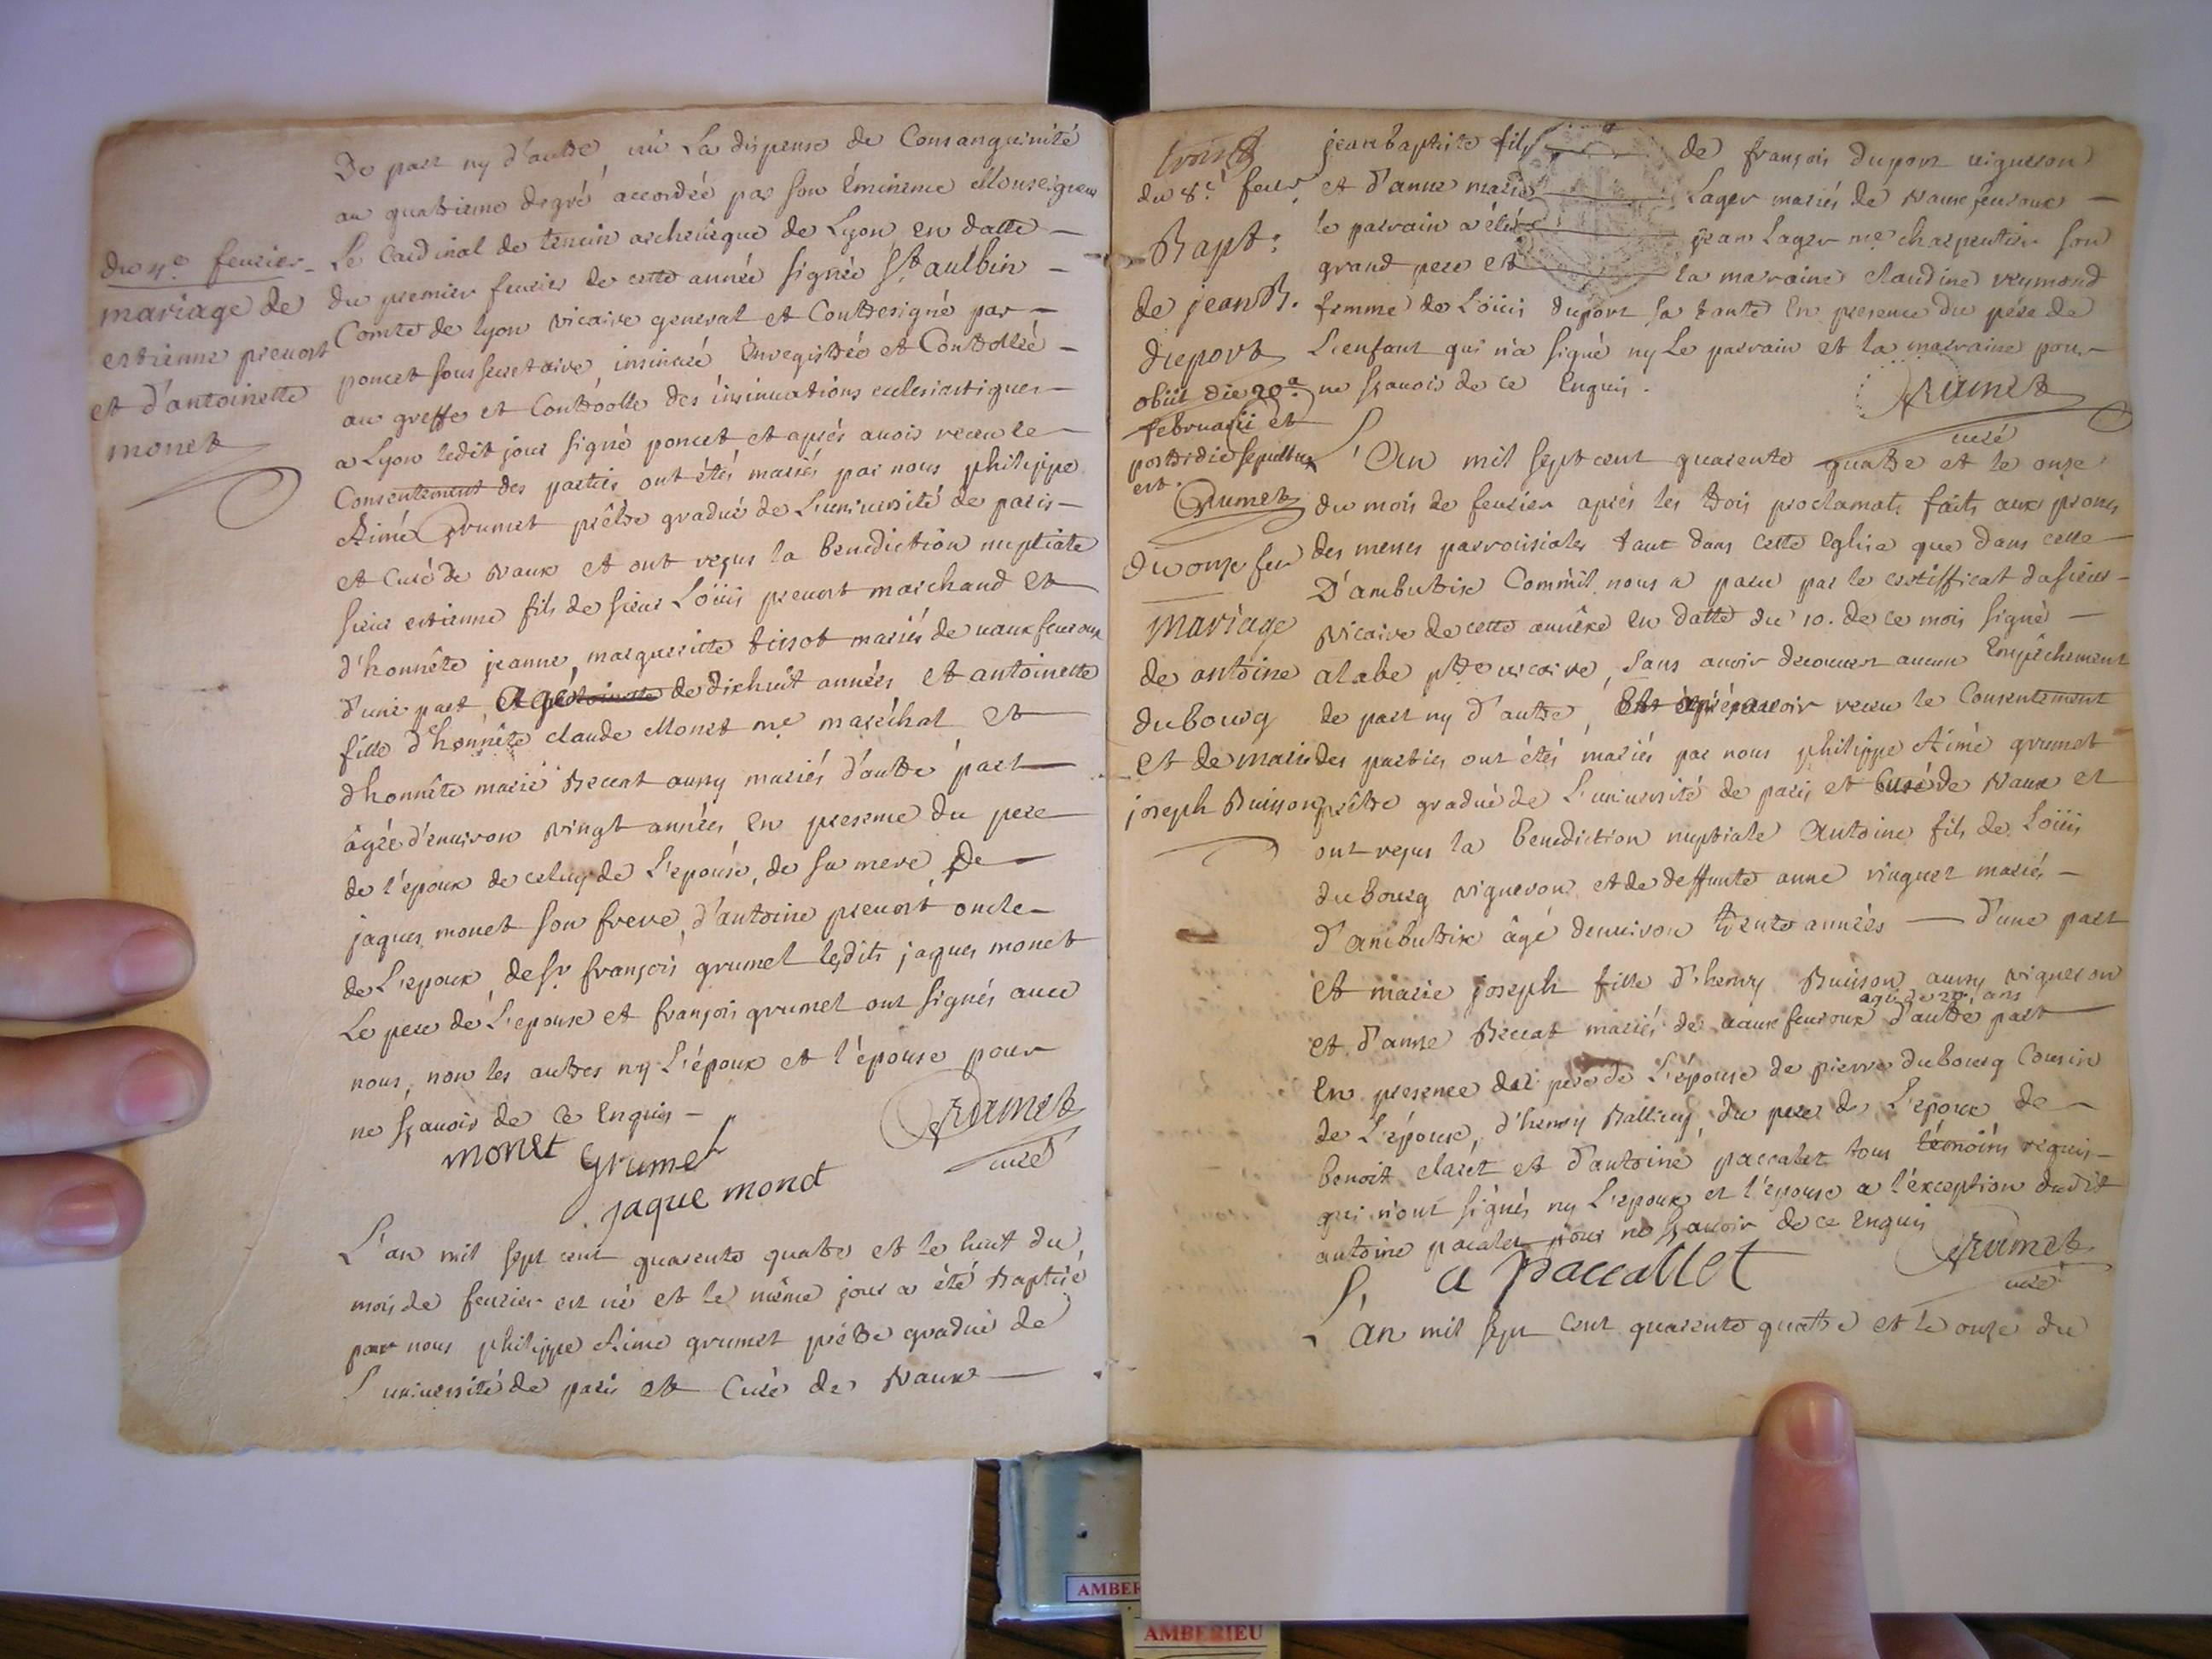 De part ny d'autre, vû La dispense de Consanguinité
au quatrieme degré accordée par son Eminence Monseigneur
Le Cardinal de tencin archeveque de Lyon en datte
du premier feurier de cette année signée St aulbin
Comte de lyon vicaire general et Contresigné par
poncet sous secretaire, insinuée Enregistrée et Controllée
au greffe et Controolle des insinuations ecclesiastiques
a Lyon ledit jour signé poncet et aprés auoir receu le
Consentement des parties ont étés mariés par nous philippe
Aimé Grumet prêtre gradué de L'uniuersité de paris
et Curé de vaux et ont reçus la benediction nuptiale
sieur estienne fils de sieur Loüis preuost marchand et
d'honnête jeanne margueritte tissot mariés de vaux feuroux
d'une part, agé de dixhuit années et antoinette
fille d'honnête claude Monet me maréchal et
d'honnête marie Beccat aussy mariés d'autre part
âgée d'enuiron vingt années en presence du pere
de l'epoux de celuy de L'epouse, de sa mere, De
jaques monet son frere, d'antoine preuost oncle
de L'epoux, de sr françois grumet lesdits jaques monet
Le pere de L'epouse et françois grumet ont signés auec
nous, non les autres ny L'époux et l'épouse pour
ne sçauoir de ce Enquis
monet Grumet Grumet
curé
jaque monet
L'an mil sept cent quarente quatre et le huit du
mois de feurier est né et le même jour a été Baptisé
par nous philippe Aimé grumet prêtre gradué de
L'uniuersité de paris et Curé de vaux
du 4e feurier
mariage de
estienne preuost
et d'antoinette
monet
trois
du 8e feur
Bapt:
de jean B.
duport
obiit die 20a
februarii et
postridie sepultus
est.
Grumet
jean baptiste fils de françois duport vigneron
et d'anne marie Lager mariés de vaux feuroux
le parrain a été jean Lager me charpentier son
grand pere et la marraine claudine reymond
femme de Loüis duport sa tante en presence du pére de
L'enfant qui n'a signé ny le parrain et la marraine pour
ne sçauoir de ce Enquis.
Grumet
curé
du onze feu
Mariage
de antoine
dubourg
et de marie
joseph Buisson
L'An mil sept cent quarente quatre et le onze
du mois de feurier aprés les trois proclamats faits aux prones
des messes parroissiales tant dans cette Eglise que dans celle
D'ambutrix Comm'il nous a paru par le certifficat du sieur
vicaire de cette annêxe en datte du 10. de ce mois signé
alabe ptre vicaire, sans auoir decouuert aucun Empêchement
de part ny d'autre, Et aprés auoir receu le Consentement
des parties ont étés mariés par nous philippe Aimé grumet
prêtre gradué de L'uniuersité de paris et Curé de vaux et
ont reçus la benediction nuptiale Antoine fils de Loüis
dubourg vigneron et de deffunte anne vinguet mariés
d'ambutrix âgé denuiron trente années d'une part
et marie joseph fille d'henry Buisson aussy vigneron
agée de 20 ans
et d'anne Beccat mariés de vaux feuroux d'autre part
En presence du pere de L'épouse de pierre dubourg Cousin
de L'époux, d'henry Ballieuy, du pere de L'epoux de
benoit claret et d'antoine paccalet tous témoins requis
qui n'ont signés ny L'epoux et l'épouse a l'exception dudit
antoine pacalet pour ne sçauoir de ce Enquis
Grumet
curé
a paccallet
L'an mil sept cent quarente quatre et le onze du
AMBER
AMBERIEU